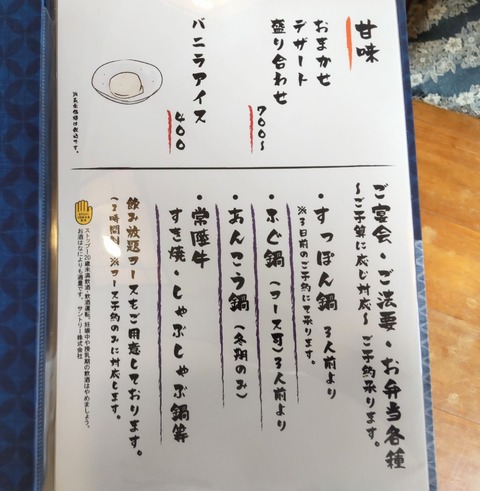 甘味
おまかせ
デザート
盛り合わせ
700〜
バニラアイス
400
※表示価格は税込です。
ご宴会・ご法要・お弁当各種
〜ご予算に応じ対応〜 ご予約承ります。
・すっぽん鍋 3人前より
※3日前のご予約にて承ります。
・ふぐ鍋(コース可)3人前より
・あんこう鍋(冬期のみ)
・常陸牛
すき焼・しゃぶしゃぶ鍋等
飲み放題コースをご用意しております。
※コース予約のみに対応します。
ストップ!20歳未満飲酒・飲酒運転。妊娠中や授乳期の飲酒はやめましょう。
お酒はなによりも適量です。サントリー株式会社